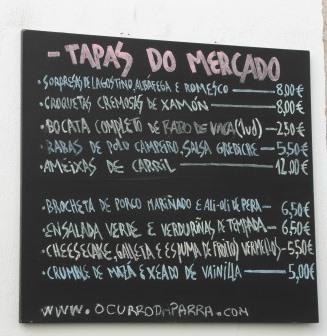 - TAPAS DO MERCADO
· SORPRESAS DE LAGOSTINO, ALBAFEGA E ROMESCO — 8,00€
· CROQUETAS CREMOSAS DE XAMÓN — 8,00€
· BOCATA COMPLETO DE RABO DE VACA (1ud) — 2,50€
· RABAS DE POLO CAMPEIRO, SALSA GREBICHE — 5,50€
· AMEIXAS DE CARRIL — 12,00€
· BROCHETA DE PORCO MARIÑADO E ALI-OLI DE PERA — 6,50€
· ENSALADA VERDE E VERDURIÑAS DE TEMPADA — 6,50€
· CHEESECAKE, GALLETA E ESPUMA DE FROITOS VERMELLOS — 5,50€
· CRUMBLE DE MAZÁ E XEADO DE VAINILLA — 5,00€
WWW.OCURRODAPARRA.COM